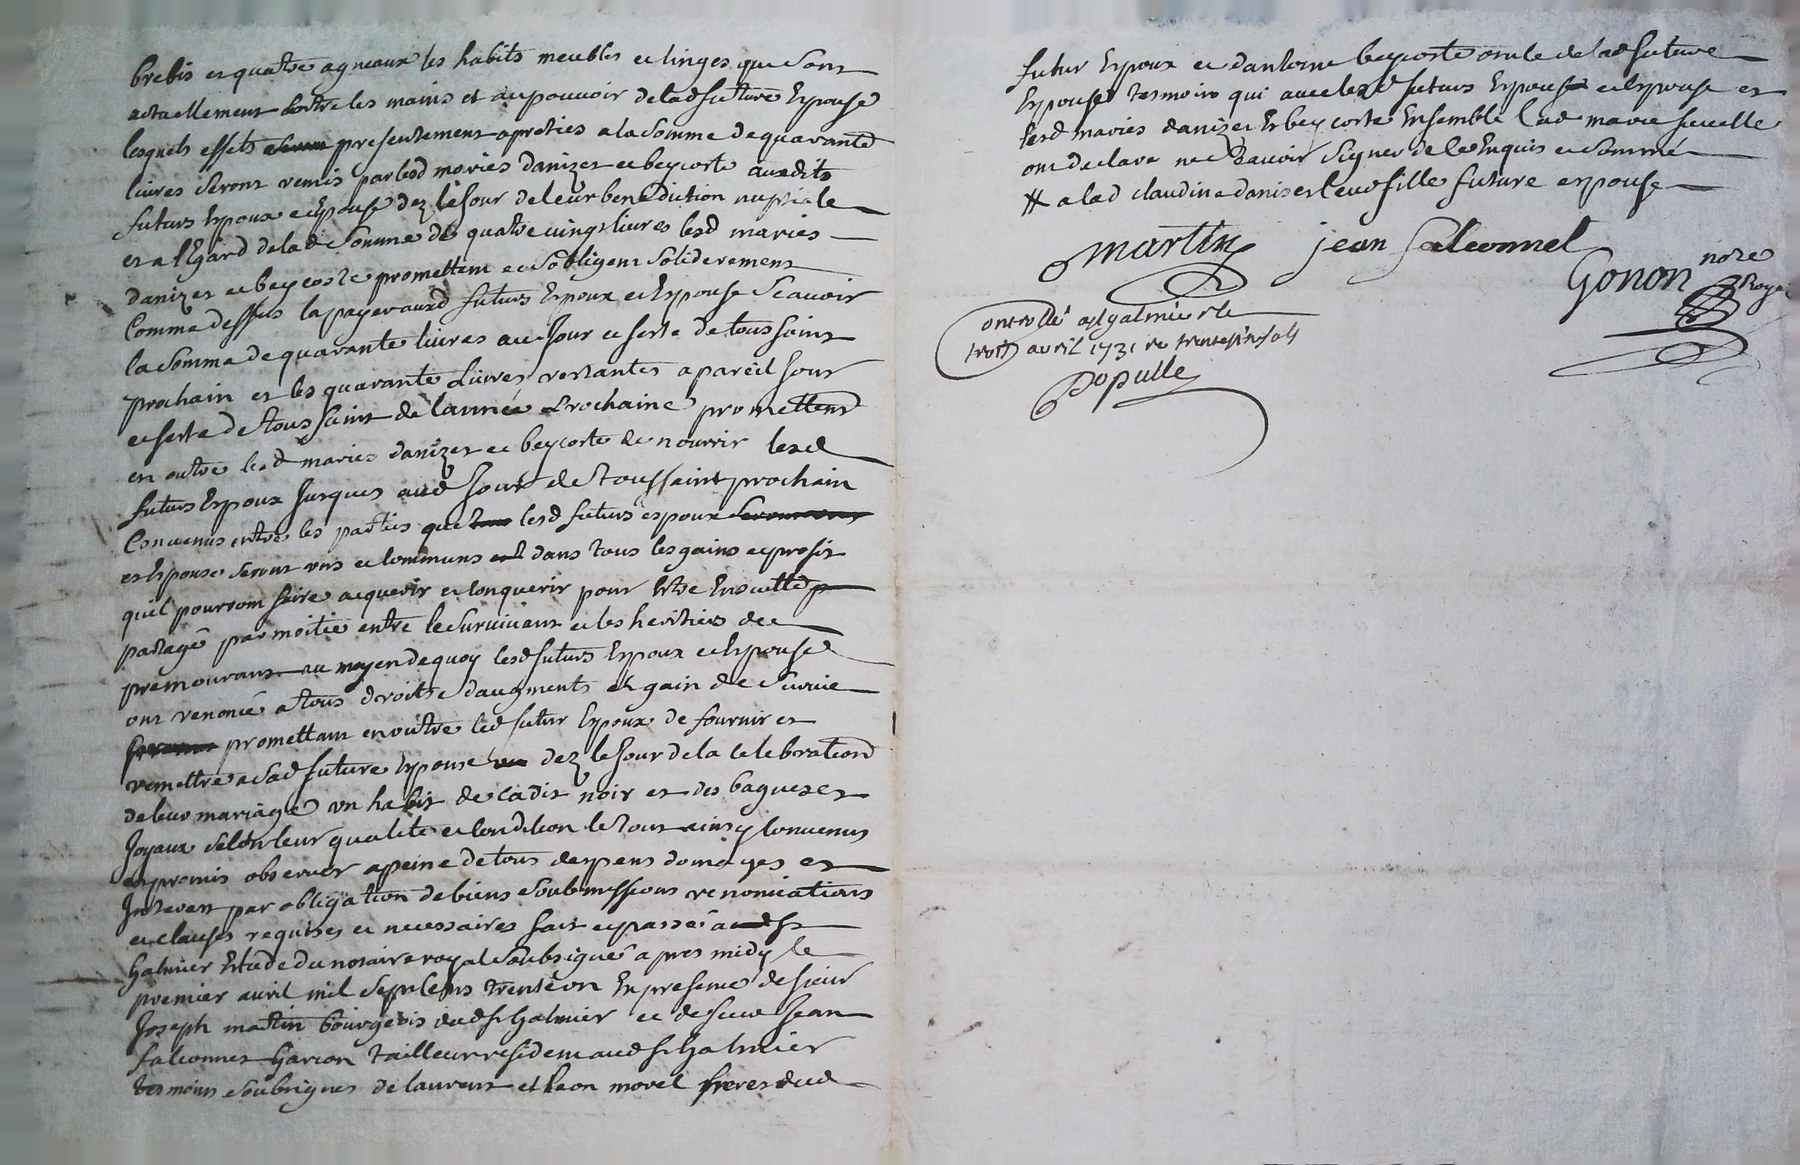 brebis et quatre agneaux les habits meubles et linges qui sont
actuellement entre les mains et au pouvoir de lad future Espouse
lesquels effets presentement apreties a la somme de quarante
livres seront remis par lesd maries danizet et beycoste auxdits
futurs Espoux et Espouse dez le Jour de leur benediction nuptiale
et a l'Egard de lad somme de quatre vingt livres lesd maries
danizet et beycoste promettent et s'obligent soliderement
Comme dessus la payer auxd futurs Espoux et Espouse scavoir
la somme de quarante livres au Jour et feste de tous saint
prochain et les quarante Livres restantes a pareil Jour
et feste de toussaint de l'année Prochaine promettent
en outre lesd maries danizet et beycoste de nourrir lesd
futurs Espoux Jusques aud Jour de toussaint prochain
Convenus entre les parties que lesd futurs espoux
et Espouse seront unis et communs dans tous les gains et profit
quil pourront faire acquerir et conquerir pour Estre Ensuitte
partagé par moitié entre le survivant et les heritiers du
premourant au moyen de quoy lesd futurs Espoux et Espouse
ont renoncé a tous droits d'augments et gain de survie
promettant en outre led futur Espoux de fournir et
remettre a sad future Espouse dez le Jour de la celebration
de leur mariage un habit de cadis noir et des bagues et
Joyaux selon leur qualité et condition le tout ainsy convenus
et promis observer a peine de tous despens domages et
Interest par obligation de biens soubmissions renonciations
et clauses requises et necessaires fait et passé a St
Galmier Estude du notaire royal soubsigné apres midy le
premier avril mil sept cens trente un En presence de sieur
Joseph martin bourgeois dud St Galmier et de sieur Jean
falconnet Garcon tailleur resident aud St Galmier
tesmoins soubsignes de laurent et Jean morel freres dud
futur Espoux et d'antoine beycoste oncle de lad future
Espouse tesmoins qui avec lesd futurs Espoux et Espouse et
lesd maries danizet et beycoste Ensemble lad marie
ont declaré ne scavoir signer de ce Enquis et sommé
# a lad claudine daniset leur fille future espouse
martin jean falconnet
Gonon nore Royal
Controllé a St galmier le
trois avril 1731 re
Populle